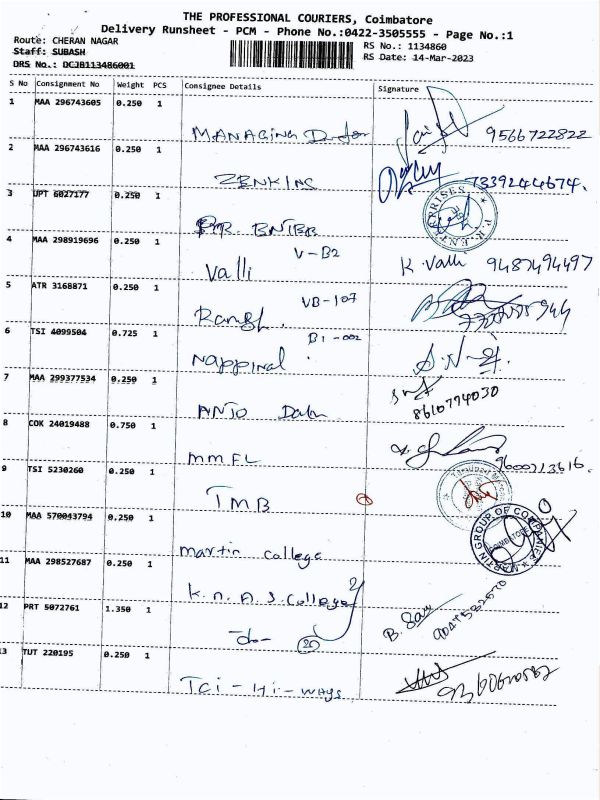 THE PROFESSIONAL COURIERS, Coimbatore
Delivery Runsheet - PCM - Phone No.:0422-3505555 - Page No.:1
Route: CHERAN NAGAR
RS No.: 1134860
Staff: SUBASH
RS Date: 14-Mar-2023
DRS No.: DCJB113486001
S No Consignment No Weight PCS Consignee Details Signature
1 MAA 296743605 0.250 1
MANAGING 9566722822
2 MAA 296743616 0.250 1
ZENKINS 7339244674.
3 UPT 6027177 0.250 1
P.R. ENTERPRISES
4 MAA 298919696 0.250 1
V-B2
Valli K. Valli 9487494497
5 ATR 3168871 0.250 1
VB-107
6 TSI 4099504 0.725 1
B1-002
Nappinal
7 MAA 299377534 0.250 1
8610774030
ANTO
8 COK 24019488 0.750 1
MMFL
9 TSI 5230260 0.250 1
TMB
10 MAA 570043794 0.250 1
MARTIN GROUP OF COMPANIES
COIMBATORE
Martin College
11 MAA 298527687 0.250 1
K.N.A.S. College
12 PRT 5072761 1.350 1
-do-
13 TUT 220195 0.250 1
TCI-Hi-ways